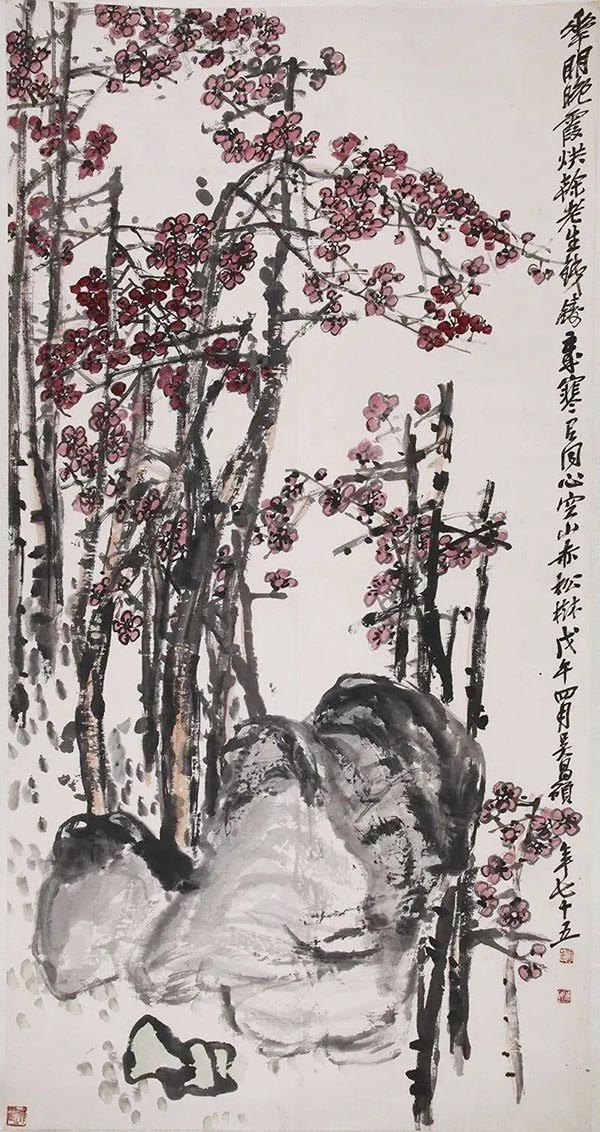 華明晚霞烘榦老生鐵鑄歲寒有同心空山赤松樹戊午四月吳昌碩年七十五